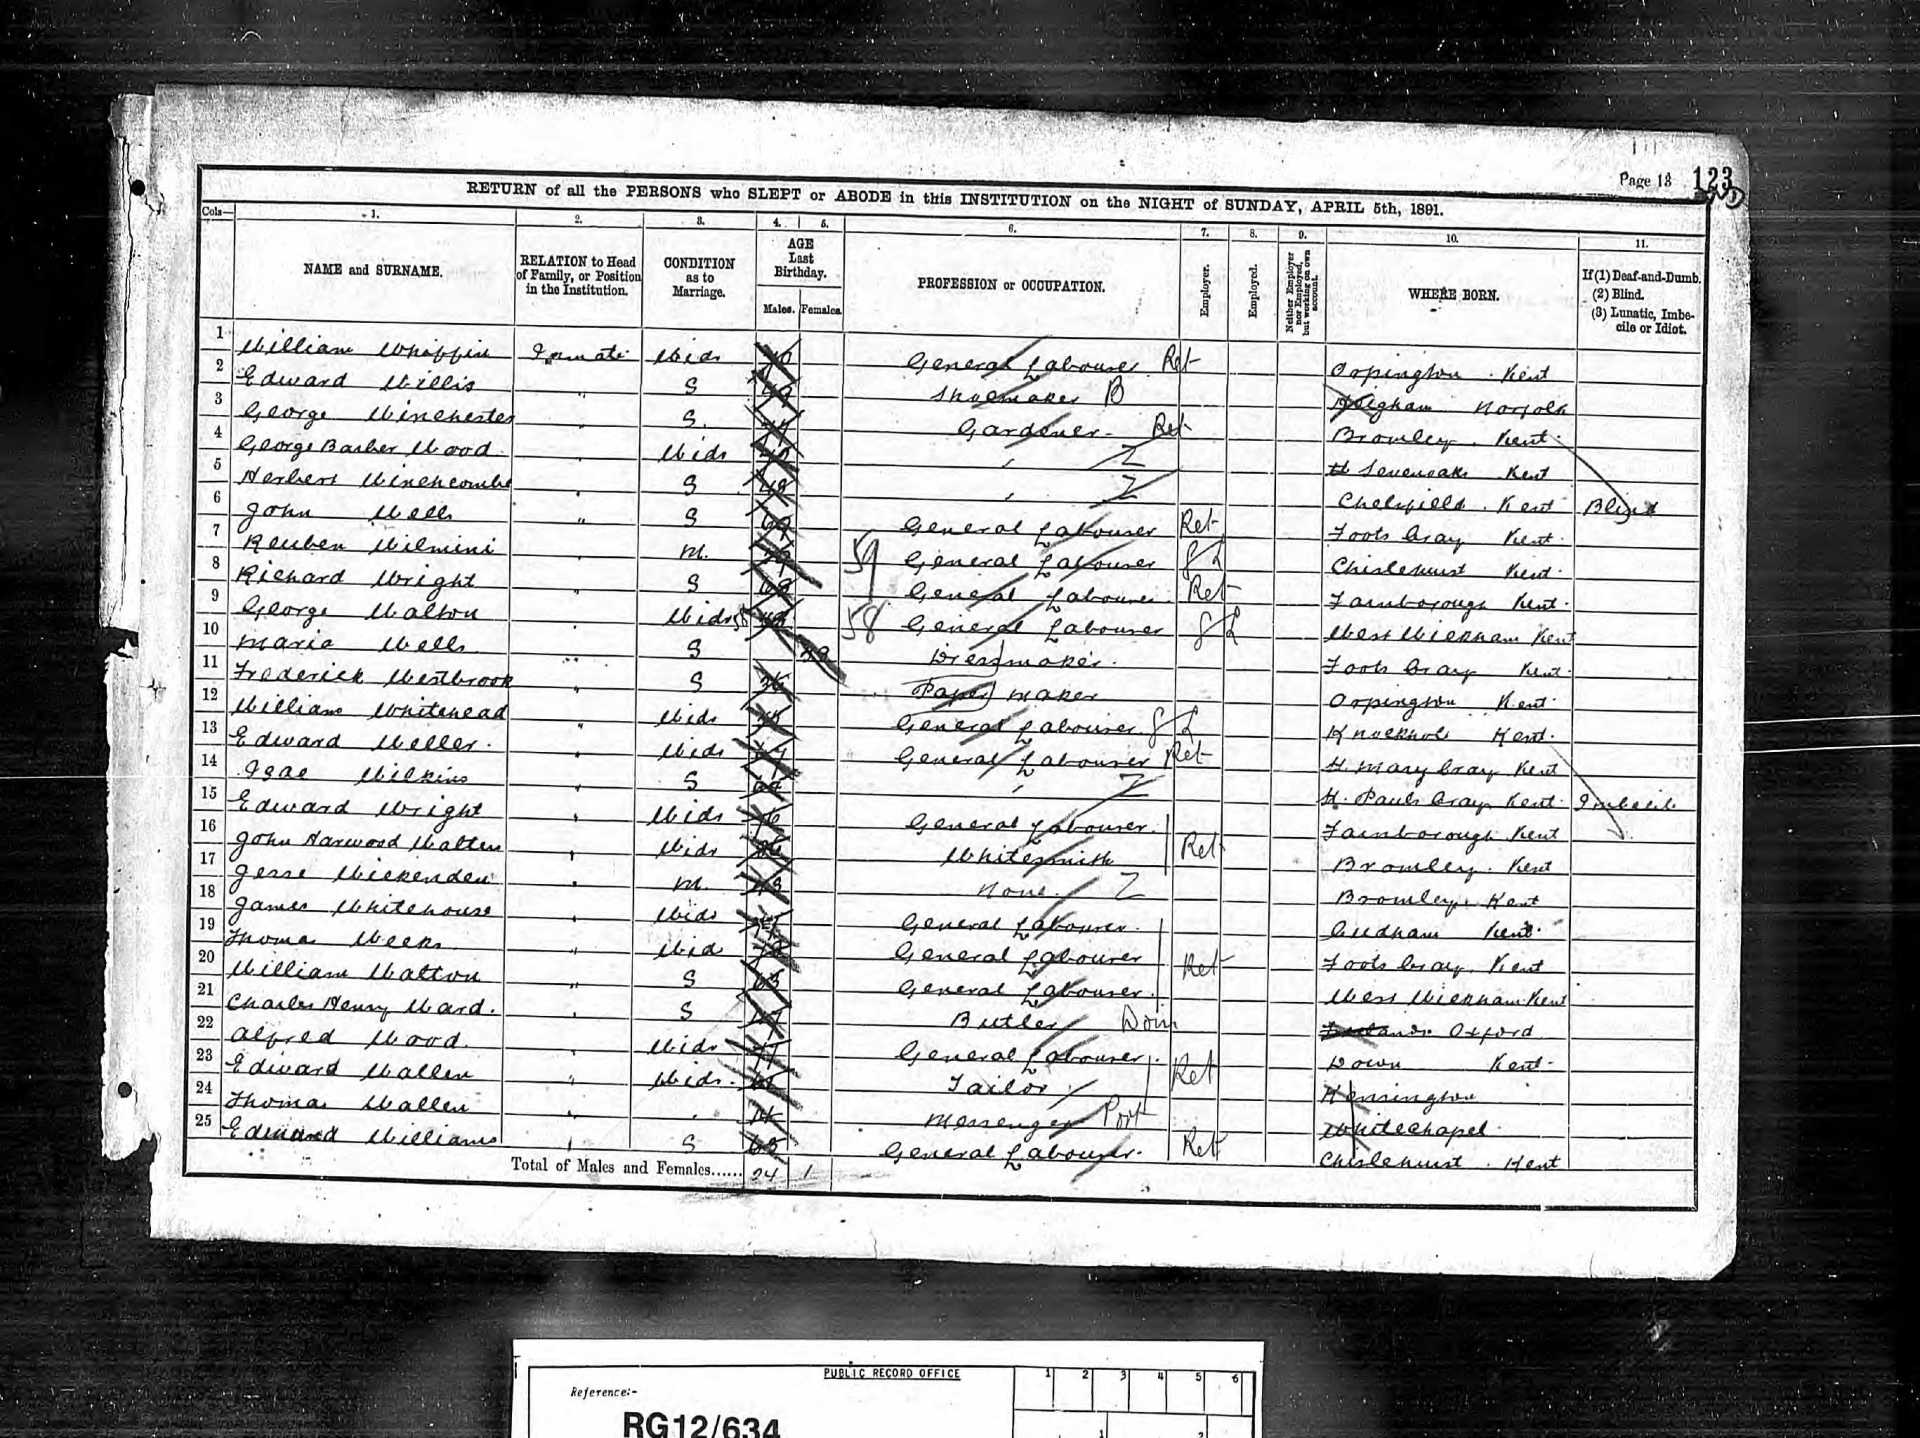 Page 13 123
RETURN of all the PERSONS who SLEPT or ABODE in this INSTITUTION on the NIGHT of SUNDAY, APRIL 5th, 1891.
Cols— 1. 2. 3. 4. 5. 6. 7. 8. 9. 10. 11.
NAME and SURNAME.
RELATION to Head of Family, or Position in the Institution.
CONDITION as to Marriage.
AGE Last Birthday.
Males. Females.
PROFESSION or OCCUPATION.
Employer.
Employed.
Neither Employer nor Employed, but working on own account.
WHERE BORN.
If (1) Deaf-and-Dumb.
(2) Blind.
(3) Lunatic, Imbecile or Idiot.
1 William Whiffin Inmate Widr General Labourer Ret Orpington Kent
2 Edward Willis " S Shoemaker B Heigham Norfolk
3 George Winchester " S. Gardener Ret Bromley Kent
4 George Barber Wood " Widr " Z Sevenoaks Kent
5 Herbert Winchcombe " S " Z Chelsfield Kent Blind
6 John Wells " S General Labourer Ret Foots Cray Kent
7 Reuben M. 59 General Labourer G L Chislehurst Kent
8 Richard Wright " S General Labourer Ret Farnborough Kent
9 George Walton " Widr 58 58 General Labourer G L West Wickham Kent
10 Maria Wells " S Dressmaker Foots Cray Kent
11 Frederick Westbrook " S Paper maker Orpington Kent
12 William Whitehead " Widr General Labourer G L Knockholt Kent
13 Edward Weller " Widr General Labourer Ret St. Mary Cray Kent
14 Isac Wilkins " S " Z St. Pauls Cray Kent Imbecile
15 Edward Wright " Widr General Labourer Farnborough Kent
16 John Harwood Walter " Widr Whitesmith Ret Bromley Kent
17 Jesse Wickenden " M. None Z Bromley Kent
18 James Whitehouse " Widr General Labourer Cudham Kent
19 Thomas Weeks " Wid General Labourer Ret Foots Cray Kent
20 William Walton " S General Labourer West Wickham Kent
21 Charles Henry Ward " S Butler Dom Oxford
22 Alfred Wood " Widr General Labourer Down Kent
23 Edward Wallen " Widr Tailor Ret Kensington
24 Thomas Wallen " " Messenger Port Whitechapel
25 Edward Williams " S General Labourer Ret Chislehurst Kent
Total of Males and Females...... 24 1
PUBLIC RECORD OFFICE 1 2 3 4 5 6
Reference:-
RG12/634